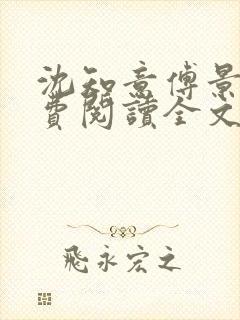 沈知意傅景
費閱讀全文
飛永宏之